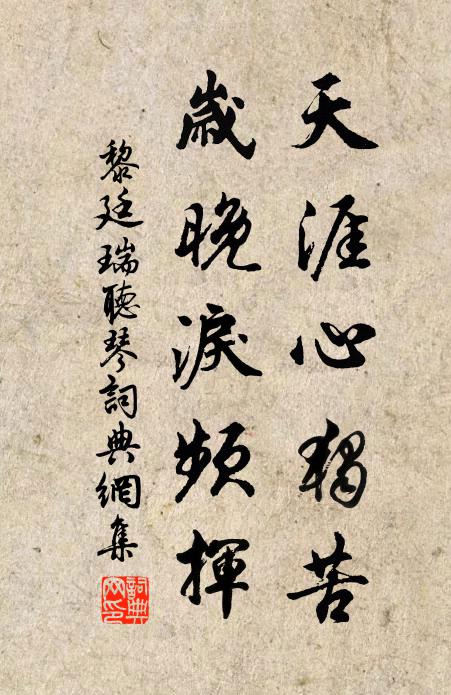 天涯心獨苦
歲晚淚頻揮
黎廷瑞聽琴詞典網集
詞典
网印